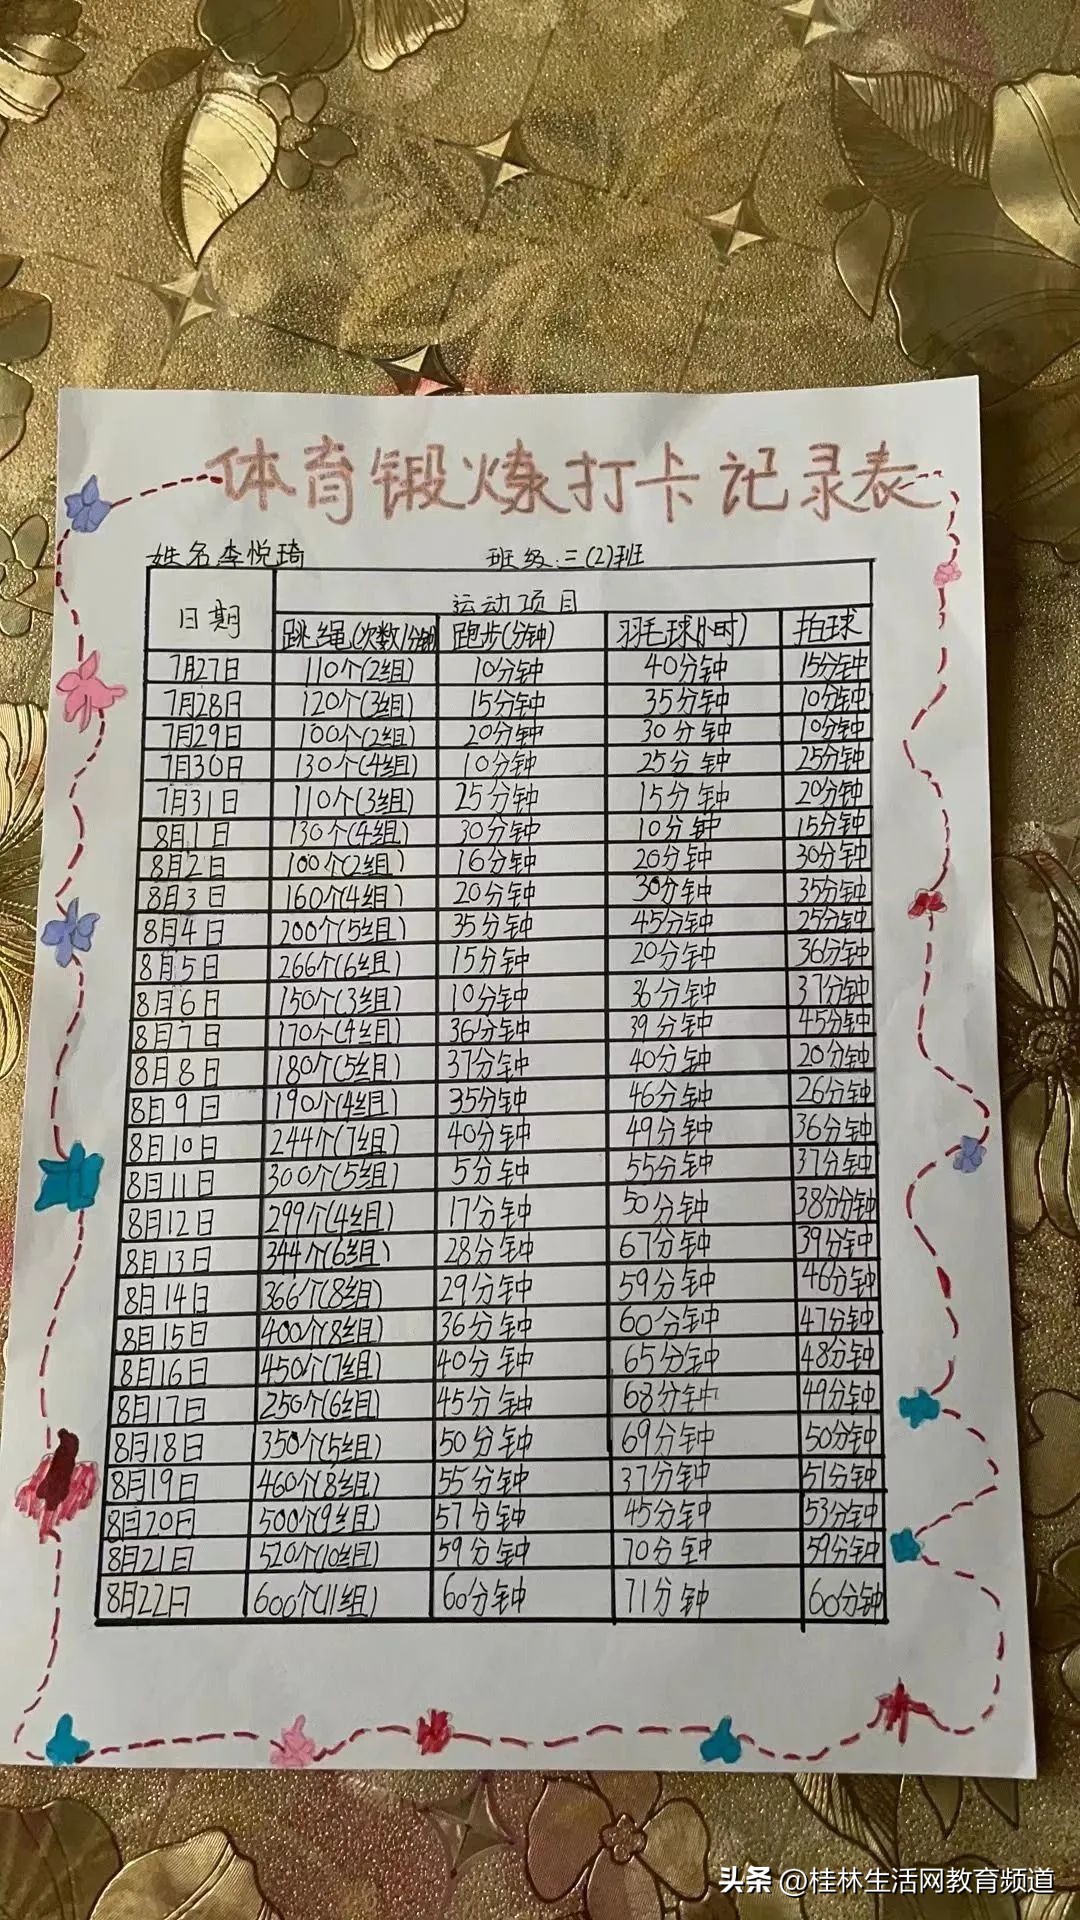 体育锻炼打卡记录表
姓名李悦琦 班级:三(2)班
日期 运动项目
跳绳(次数/分钟) 跑步(分钟) 羽毛球(小时) 拍球
7月27日 110个(2组) 10分钟 40分钟 15分钟
7月28日 120个(3组) 15分钟 35分钟 10分钟
7月29日 100个(2组) 20分钟 30分钟 10分钟
7月30日 130个(4组) 10分钟 25分钟 25分钟
7月31日 110个(3组) 25分钟 15分钟 20分钟
8月1日 130个(4组) 30分钟 10分钟 15分钟
8月2日 100个(2组) 16分钟 20分钟 30分钟
8月3日 160个(4组) 20分钟 30分钟 35分钟
8月4日 200个(5组) 35分钟 45分钟 25分钟
8月5日 266个(6组) 15分钟 20分钟 36分钟
8月6日 150个(3组) 10分钟 36分钟 37分钟
8月7日 170个(4组) 36分钟 39分钟 45分钟
8月8日 180个(5组) 37分钟 40分钟 20分钟
8月9日 190个(4组) 35分钟 46分钟 26分钟
8月10日 244个(7组) 40分钟 49分钟 36分钟
8月11日 300个(5组) 5分钟 55分钟 37分钟
8月12日 299个(4组) 17分钟 50分钟 38分分钟
8月13日 344个(6组) 28分钟 67分钟 39分钟
8月14日 366个(8组) 29分钟 59分钟 46分钟
8月15日 400个(8组) 36分钟 60分钟 47分钟
8月16日 450个(7组) 40分钟 65分钟 48分钟
8月17日 250个(6组) 45分钟 68分钟 49分钟
8月18日 350个(5组) 50分钟 69分钟 50分钟
8月19日 460个(8组) 55分钟 37分钟 51分钟
8月20日 500个(9组) 57分钟 45分钟 53分钟
8月21日 520个(10组) 59分钟 70分钟 59分钟
8月22日 600个(11组) 60分钟 71分钟 60分钟
头条 @桂林生活网教育频道